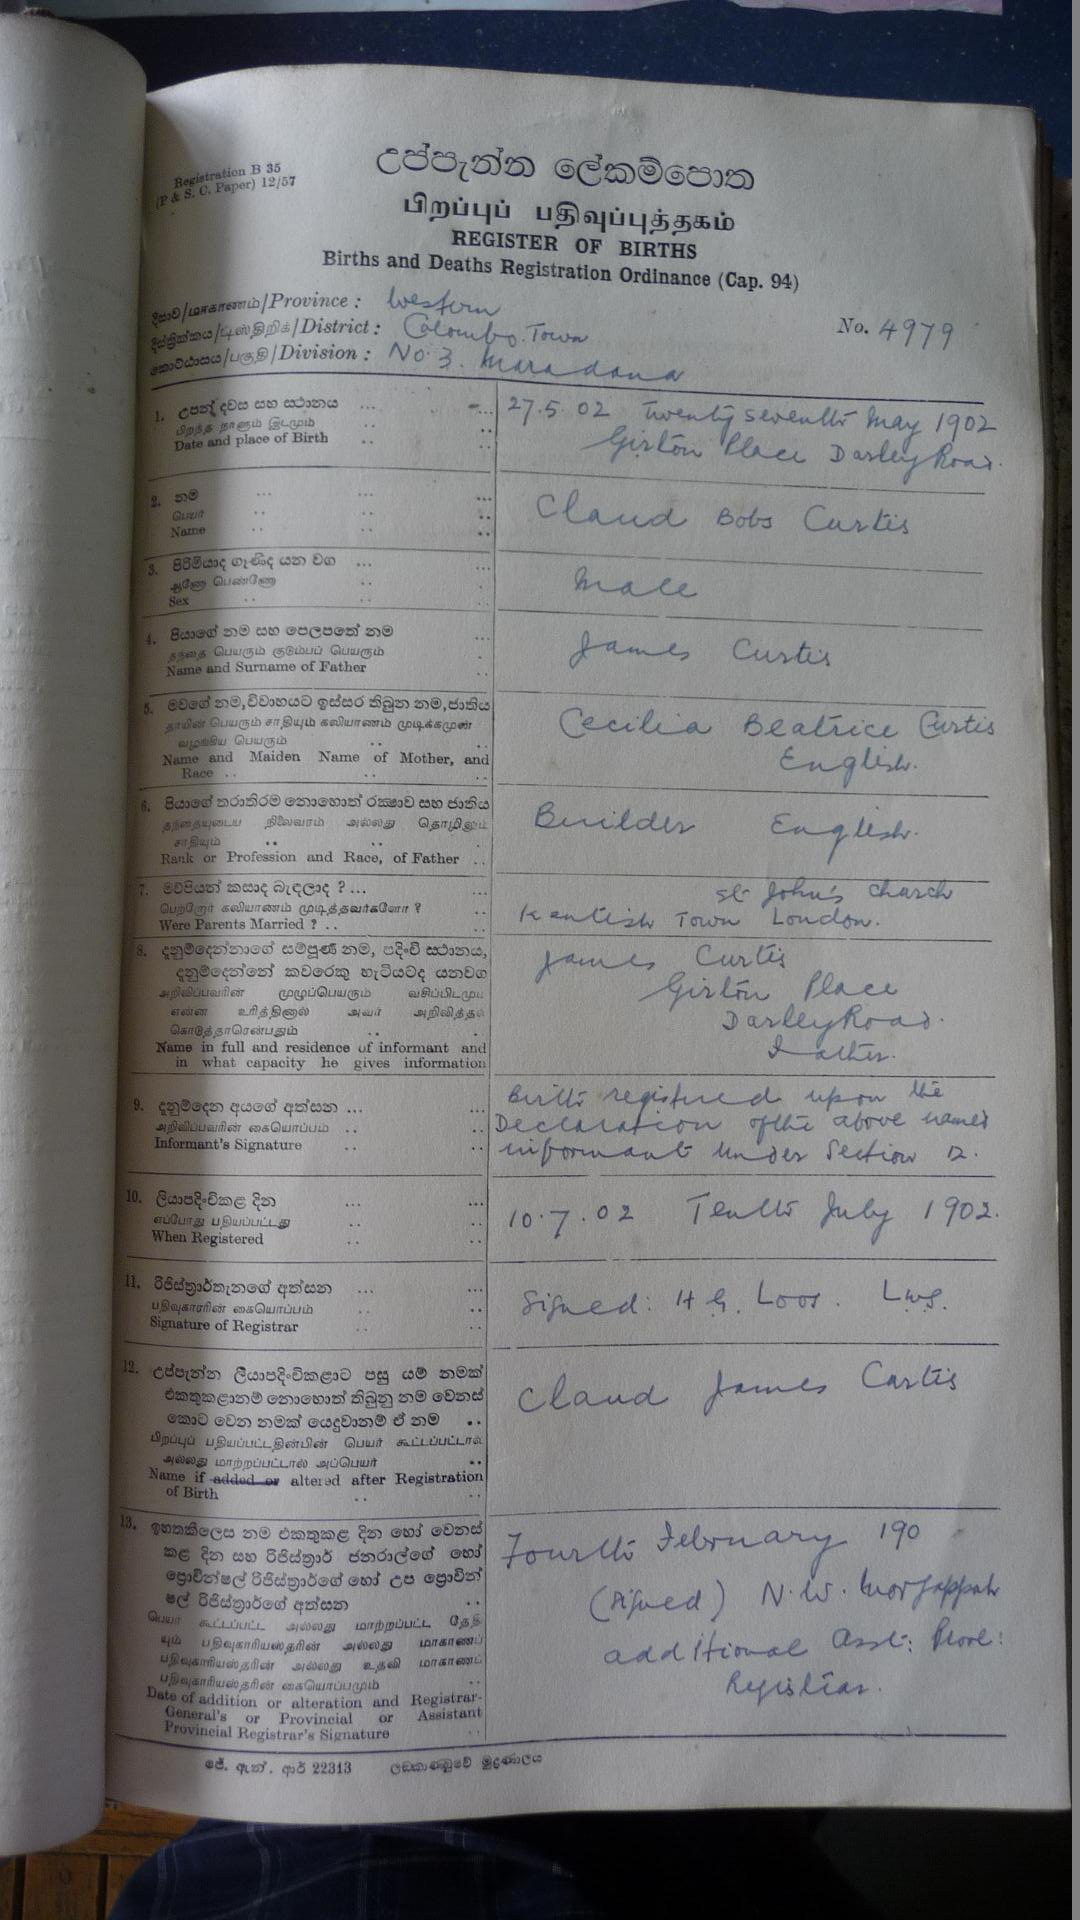 Registration B 35
(P & S. C. Paper) 12/57
උප්පැන්න ලේකම්පොත
பிறப்புப் பதிவுப்புத்தகம்
REGISTER OF BIRTHS
Births and Deaths Registration Ordinance (Cap. 94)
දිසාව/மாகாணம்/Province : Western
දිස්ත්‍රික්කය/டிஸ்திறிக்/District : Colombo Town
No. 4979
කොට්ඨාසය/பகுதி/Division : No. 3. Maradana
1. උපන් දවස සහ ස්ථානය ... 27.5.02 Twenty seventh May 1902
பிறந்த நாளும் இடமும் .. Girton Place Darley Road.
Date and place of Birth ..
2. නම ... Claud Bobs Curtis
பெயர் ..
Name ..
3. පිරිමියාද ගැණිද යන වග ... Male
ஆணோ பெண்ணோ ..
Sex ..
4. පියාගේ නම සහ පෙලපතේ නම ... James Curtis
தந்தை பெயரும் குடும்பப் பெயரும்
Name and Surname of Father
5. මවගේ නම, විවාහයට ඉස්සර තිබුන නම, ජාතිය Cecilia Beatrice Curtis
தாயின் பெயரும் சாதியும் கலியாணம் முடிக்கமுன் English.
வழங்கிய பெயரும் ..
Name and Maiden Name of Mother, and
Race ..
6. පියාගේ තරාතිරම නොහොත් රක්‍ෂාව සහ ජාතිය Builder English.
தந்தையுடைய நிலைவரம் அல்லது தொழிலும்
சாதியும் ..
Rank or Profession and Race, of Father ..
7. මව්පියන් කසාද බැඳලාද ? ... St John's Church
பெற்றோர் கலியாணம் முடித்தவர்களோ ? .. Kentish Town London.
Were Parents Married ? ..
8. දැනුම්දෙන්නාගේ සම්පූර්ණ නම, පදිංචි ස්ථානය, James Curtis
දැනුම්දෙන්නේ කවරෙකු හැටියටද යනවග Girton Place
அறிவிப்பவரின் முழுப்பெயரும் வசிப்பிடமும் Darley Road.
என்ன உரித்தினால் அவர் அறிவித்தல் Father.
கொடுத்தாரென்பதும் ..
Name in full and residence of informant and
in what capacity he gives information
9. දැනුම්දෙන අයගේ අත්සන ... Birth registered upon the
அறிவிப்பவரின் கையொப்பம் .. Declaration of the above named
Informant's Signature .. informant under Section 12.
10. ලියාපදිංචිකළ දින ... 10.7.02 Tenth July 1902.
எப்போது பதியப்பட்டது ..
When Registered ..
11. රිජිස්ත්‍රාර්තැනගේ අත්සන ... Signed: H. G. Loos.
பதிவுகாரரின் கையொப்பம் ..
Signature of Registrar ..
12. උප්පැන්න ලියාපදිංචිකළාට පසු යම් නමක් Claud James Curtis
එකතුකළානම් නොහොත් තිබුනු නම වෙනස්
කොට වෙන නමක් යෙදුවානම් ඒ නම ..
பிறப்புப் பதியப்பட்டதின்பின் பெயர் கூட்டப்பட்டால்
அல்லது மாற்றப்பட்டால் அப்பெயர் ..
Name if added or altered after Registration
of Birth ..
13. ඉහතකීලෙස නම එකතුකළ දින හෝ වෙනස් Fourth February 190
කළ දින සහ රිජිස්ත්‍රාර් ජනරාල්ගේ හෝ (signed) N. W.
ප්‍රොවින්ෂල් රිජිස්ත්‍රාර්ගේ හෝ උප ප්‍රොවින් additional Asst: Provl:
ෂල් රිජිස්ත්‍රාර්ගේ අත්සන .. Registrar.
பெயர் கூட்டப்பட்ட அல்லது மாற்றப்பட்ட தேதி
யும் பதிவுகாரியஸ்தரின் அல்லது மாகாணப்
பதிவுகாரியஸ்தரின் அல்லது உதவி மாகாணப்
பதிவுகாரியஸ்தரின் கையொப்பமும் ..
Date of addition or alteration and Registrar-
General's or Provincial or Assistant
Provincial Registrar's Signature ..
ජේ. ඇන්. ආර් 22313 ලංකාණ්ඩුවේ මුද්‍රණාලය